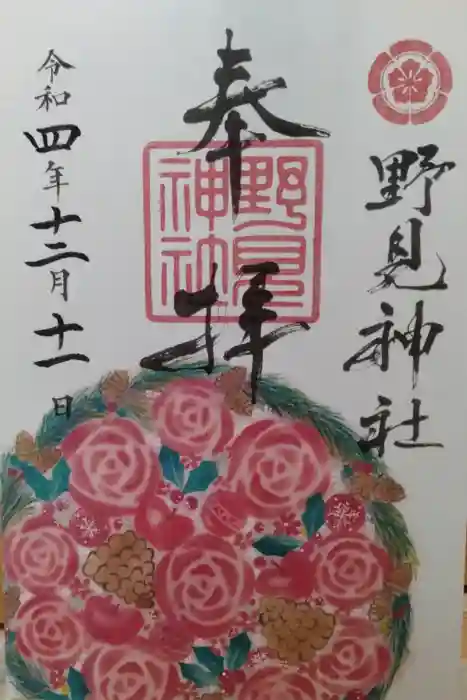 野見神社
奉拝
野見
神社
令和四年十二月十一日